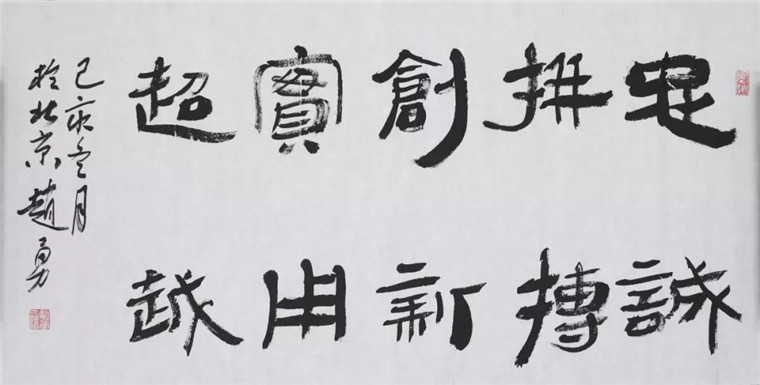 忠誠
拼搏
創新
實用
超越
己亥冬月
於北京趙勇